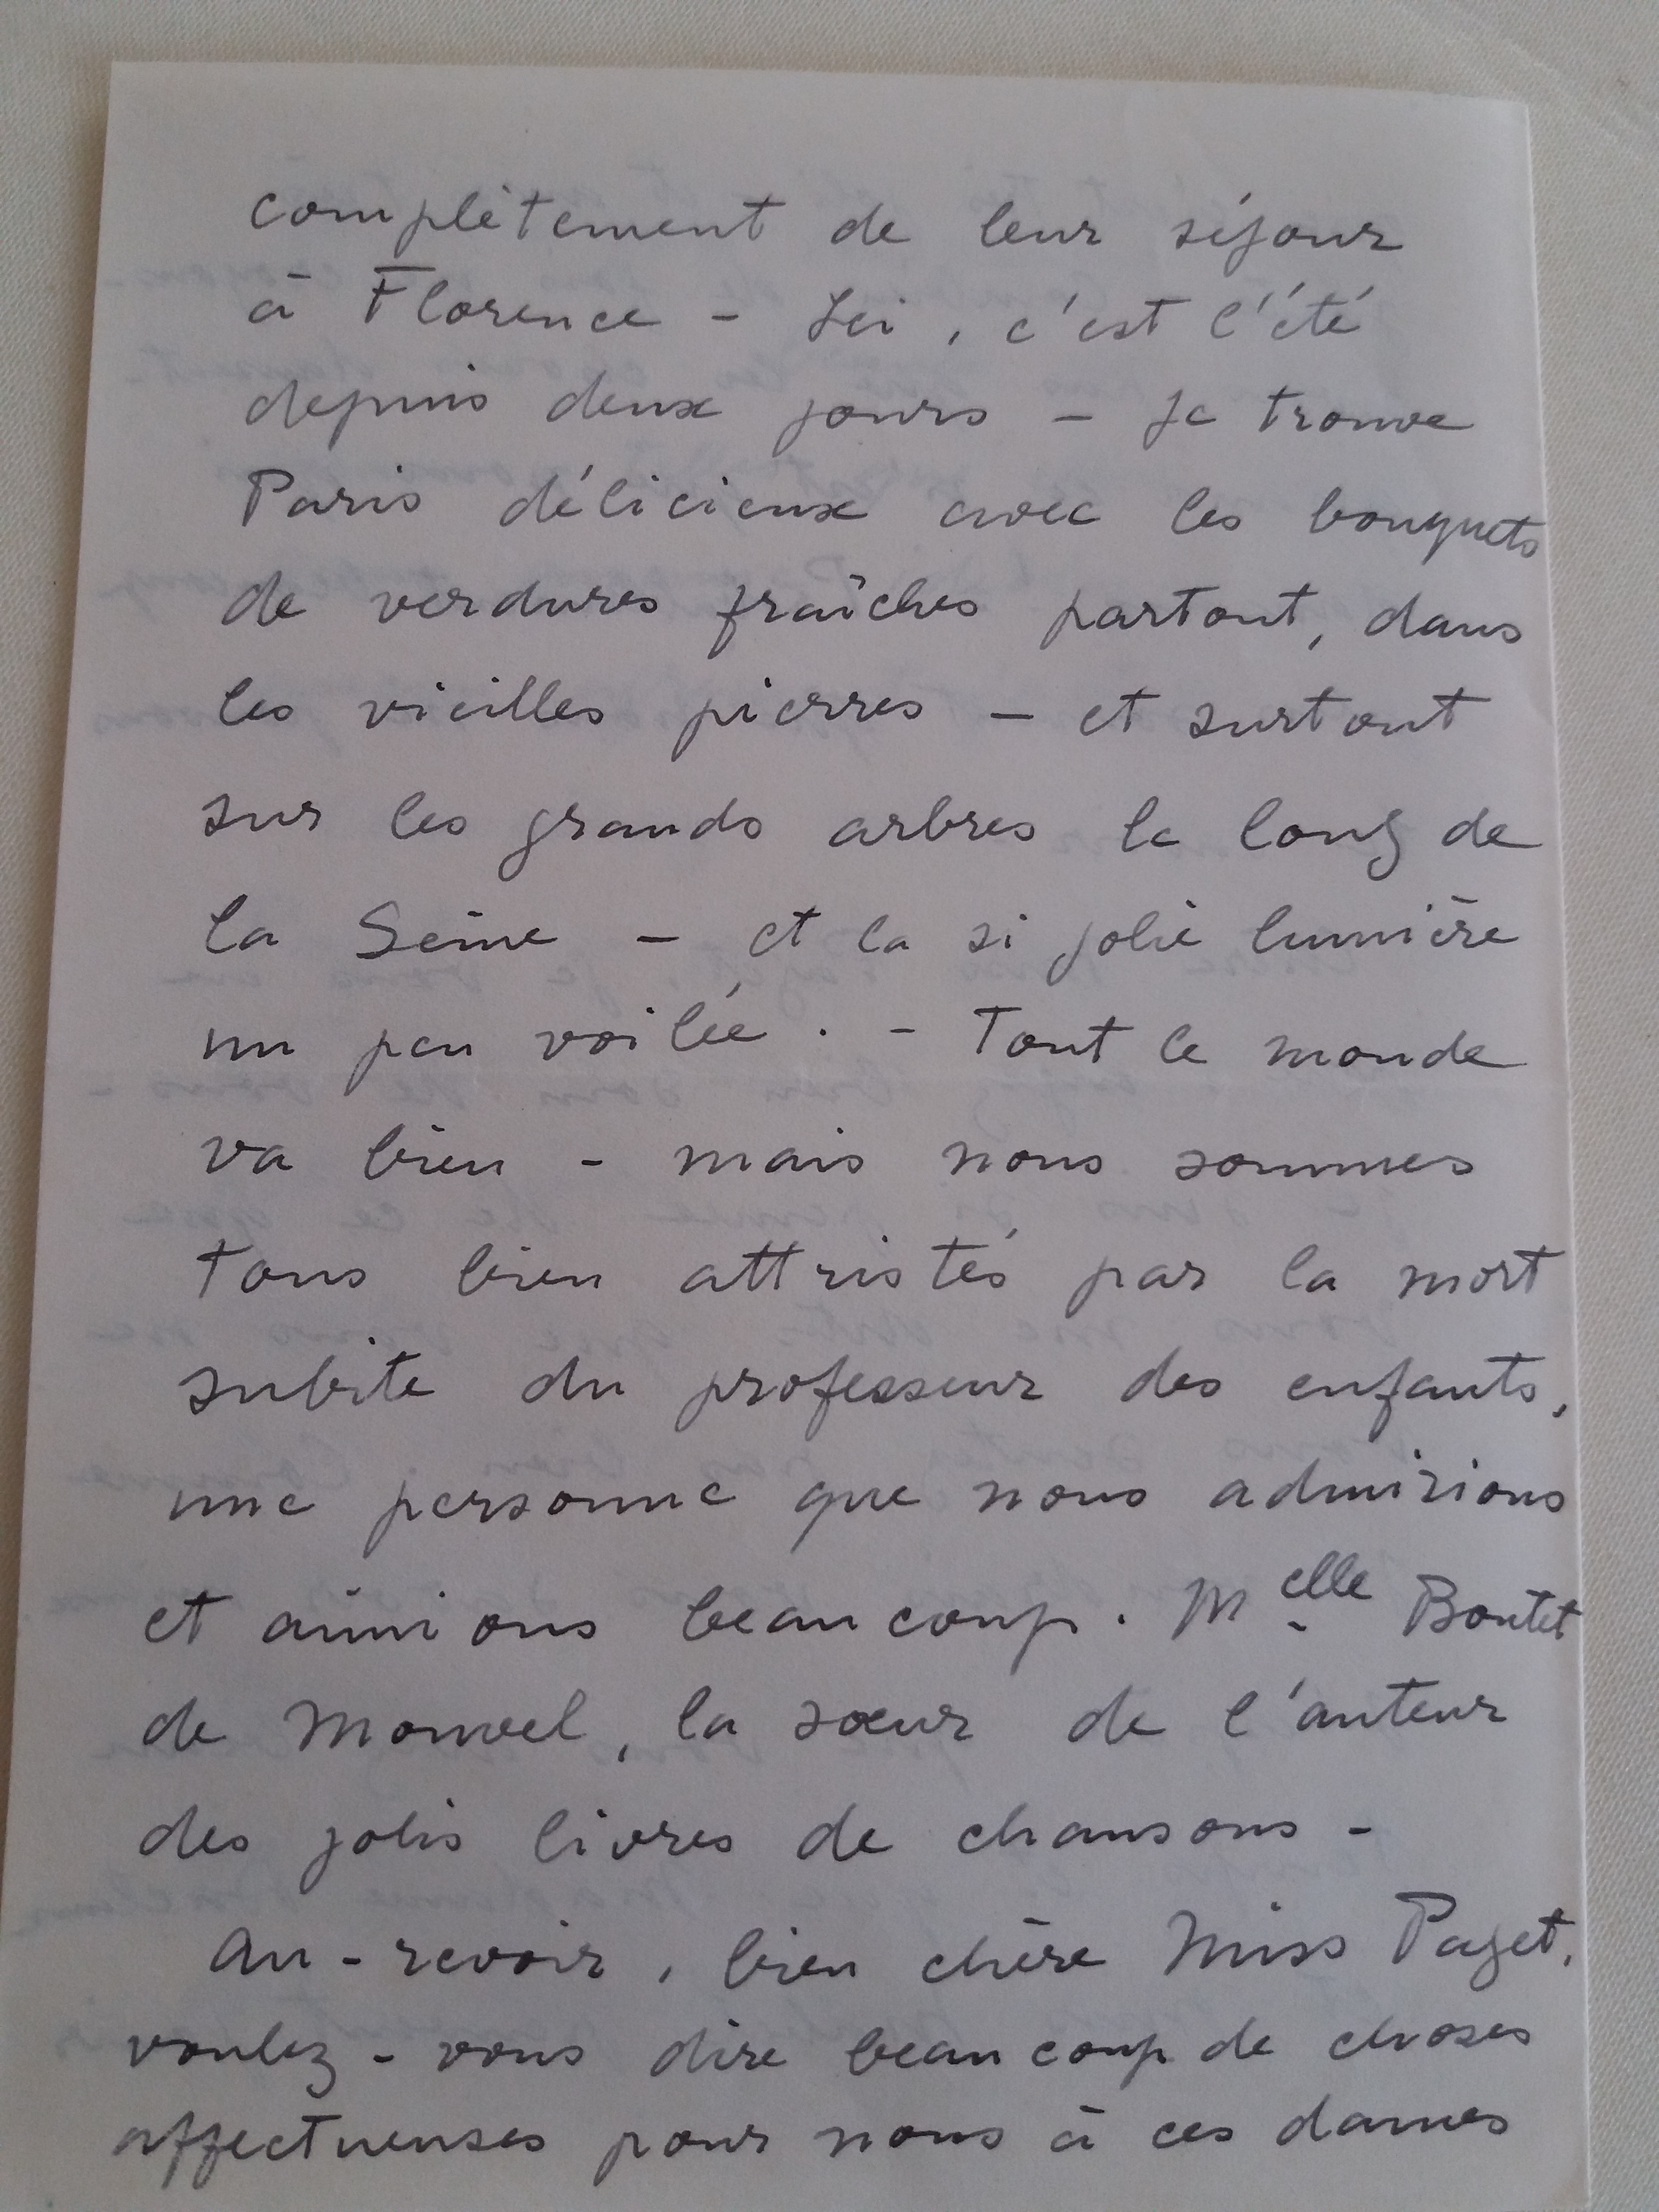 complètement de leur séjour
à Florence - Ici, c'est l'été
depuis deux jours - Je trouve
Paris délicieux avec les bouquets
de verdures fraîches partout, dans
les vieilles pierres - et surtout
sur les grands arbres le long de
la Seine - et la si jolie lumière
un peu voilée. - Tout le monde
va bien - mais nous sommes
tous bien attristés par la mort
subite du professeur des enfants,
une personne que nous admirions
et aimions beaucoup. Melle Boutet
de Monvel, la sœur de l'auteur
des jolis livres de chansons -
Au-revoir, bien chère Miss Paget,
voulez-vous dire beaucoup de choses
affectueuses pour nous à ces dames